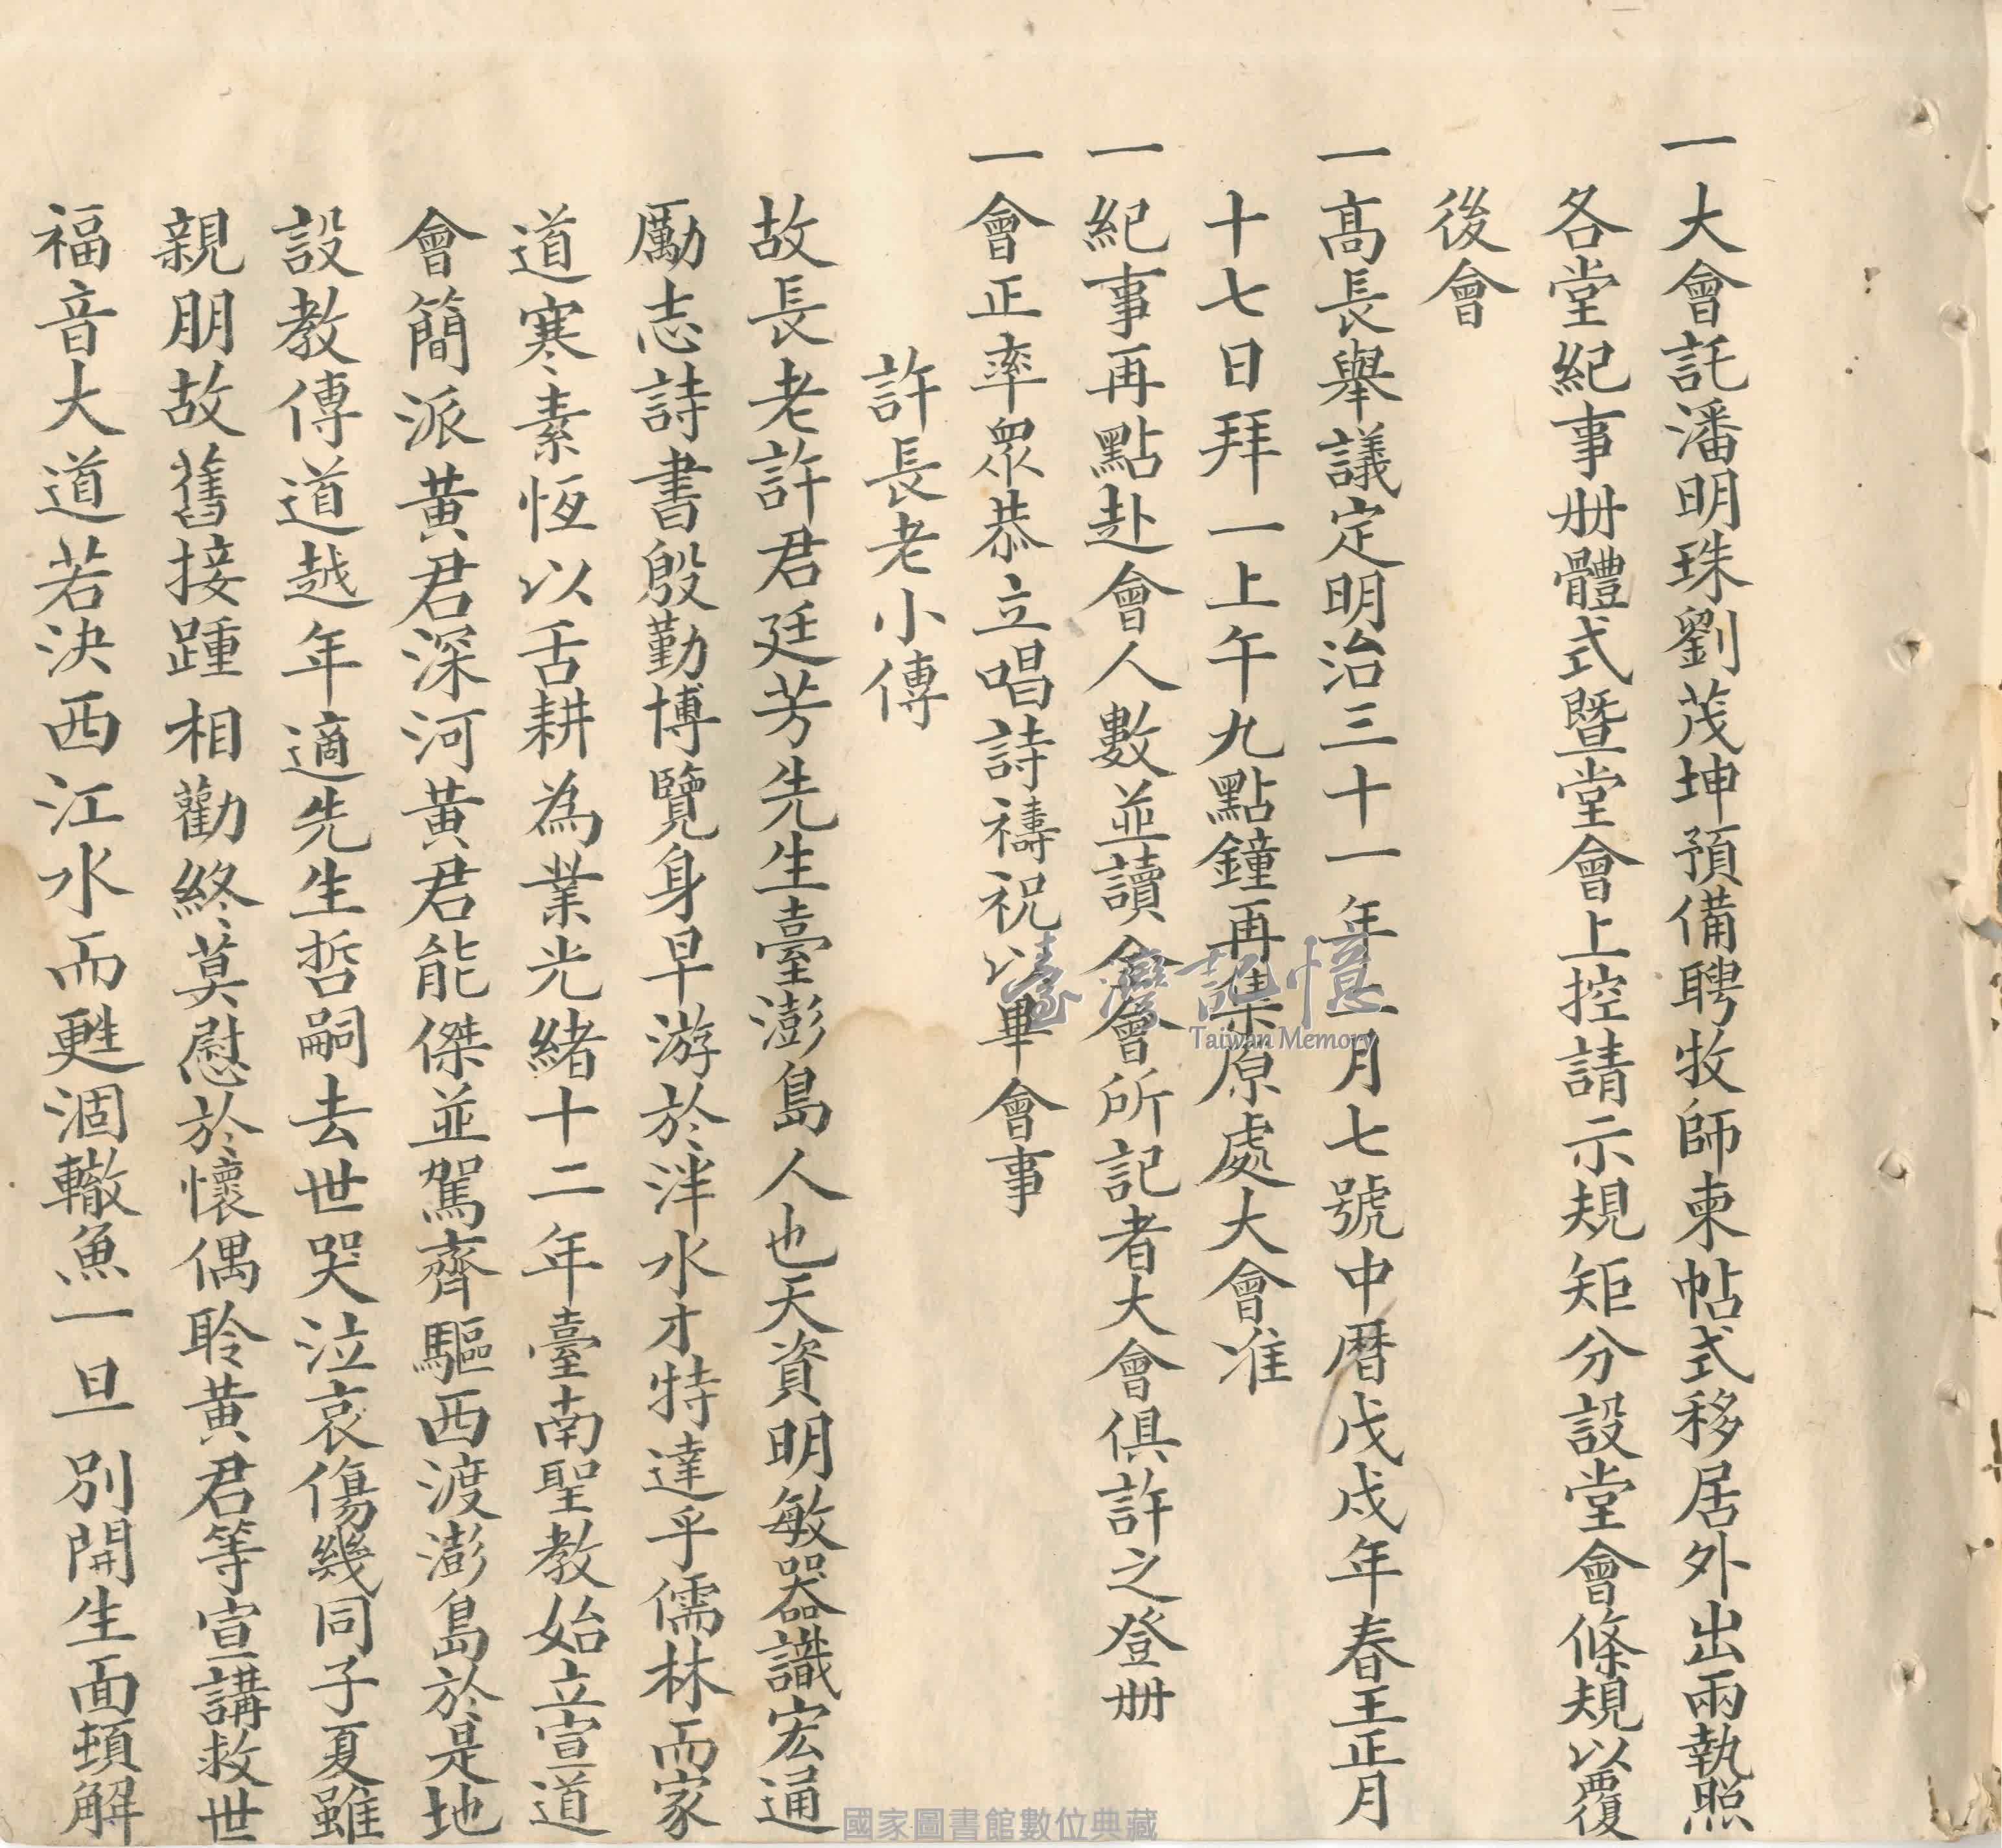 一大會託潘明珠劉茂坤預備聘牧師柬帖式移居外出兩執照
各堂紀事冊體式暨堂會上控請示規矩分設堂會條規以覆
後會
一高長舉議定明治三十一年二月七號中曆戊戌年春王正月
十七日拜一上午九點鐘再集原處大會准
一紀事再點赴會人數並讀今會所記者大會俱許之登冊
一會正率眾恭立唱詩禱祝以畢會事
許長老小傳
故長老許君廷芳先生臺澎島人也天資明敏器識宏通
勵志詩書殷勤博覽身早游於泮水才特達乎儒林而家
道寒素恆以舌耕為業光緒十二年臺南聖教始立宣道
會簡派黃君深河黃君能傑並駕齊驅西渡澎島於是地
設教傳道越年適先生哲嗣去世哭泣哀傷幾同子夏雖
親朋故舊接踵相勸終莫慰於懷偶聆黃君等宣講救世
福音大道若決西江水而甦涸轍魚一旦別開生面頓解
臺灣記憶
Taiwan Memory
國家圖書館數位典藏